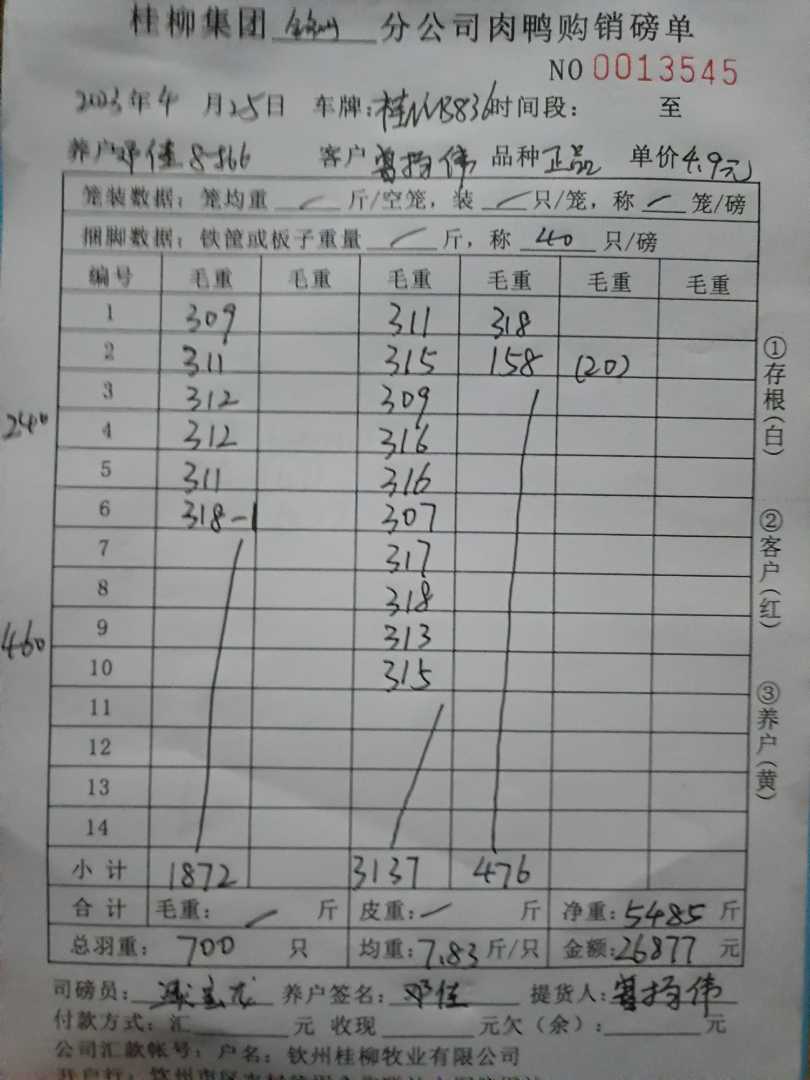 桂柳集团 钦州 分公司肉鸭购销磅单
NO 0013545
2023年4月25日 车牌: 时间段: 至
养户 邓佳 8-566 客户 曾扬伟 品种 正品 单价4.9元
笼装数据: 笼均重 / 斤/空笼, 装 / 只/笼, 称 / 笼/磅
捆脚数据: 铁筐或板子重量 / 斤, 称 40 只/磅
编号 毛重 毛重 毛重 毛重 毛重 毛重
1 309 311 318
2 311 315 158 (20)
3 312 309
240
4 312 316
5 311 316
6 318-1 307
7 317
8 318
9 313
460
10 315
11
12
13
14
小计 1872 3137 476
合计 毛重: / 斤 皮重: / 斤 净重: 5485 斤
总羽重: 700 只 均重: 7.83 斤/只 金额: 26877 元
司磅员: 养户签名: 邓佳 提货人: 曾扬伟
付款方式: 汇 元 收现 元欠(余): 元
公司汇款帐号: 户名: 钦州桂柳牧业有限公司
①存根(白)
②客户(红)
③养户(黄)